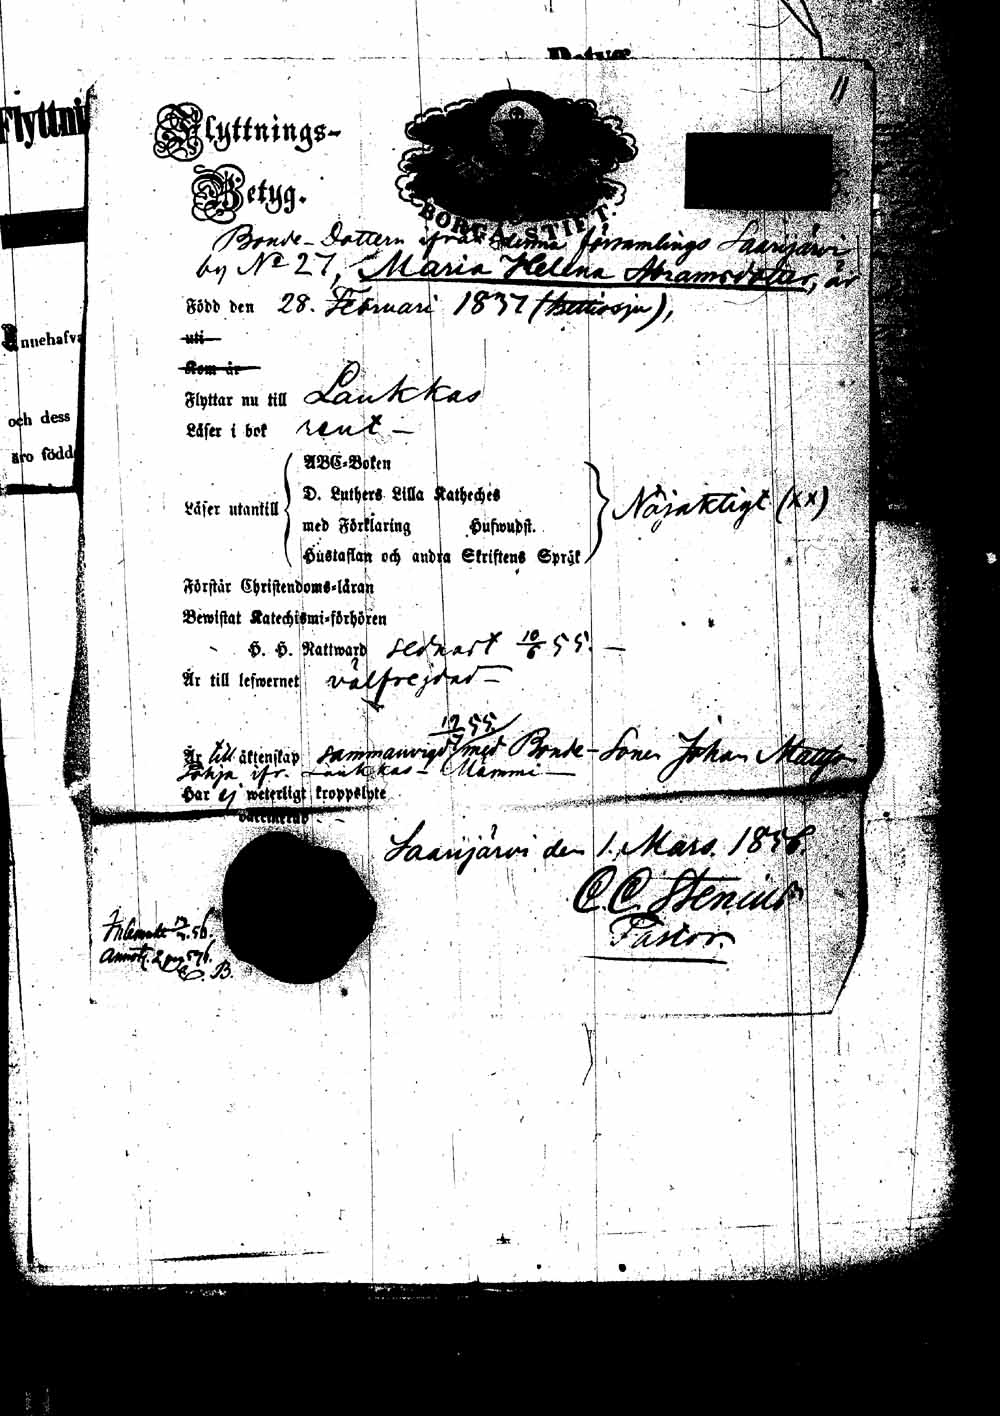 11
Flyttnings-
Betyg.
BORGÅ STIFT.
Bonde-Dottern ifrån denna församlings Saarijärvi
by No 27, Maria Helena Abramsdotter, är
Född den 28. Februari 1837
uti
Kom år
Flyttar nu till Laukkas
Läser i bok rent —
Läser utantill
ABC-Boken
D. Luthers Lilla Katheches
med Förklaring Hufwudst.
Hustaflan och andra Skriftens Språk
Nöjaktigt (xx)
Förstår Christendoms-läran
Bewistat Katechismi-förhören
H. H. Nattward sednast 10/6 55. —
Är till lefwernet välfrejdad —
Är till äktenskap sammanvigd med Bonde-Sonen Johan Matts
ifr. Laukkas — Mämmi —
Har ej weterligt kroppslyte
vaccinerad
Saarijärvi den 1. Mars. 1856.
C. C. Stenius
Pastor.
56.
C. B.
Flyttni
Innehafva
och dess
äro födde
Betyg